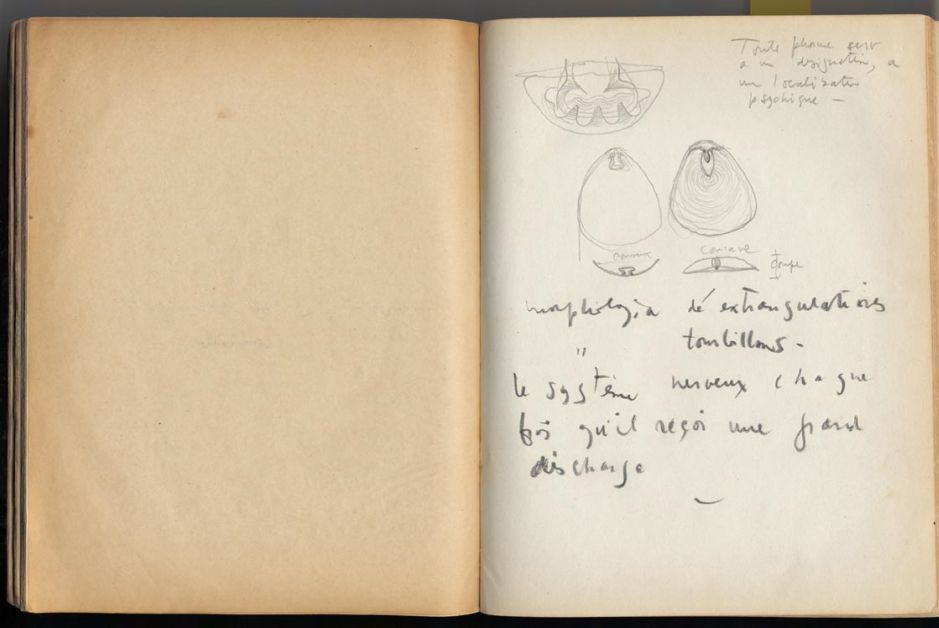 Toute phrase sert
a un designation, a
un localisation
psychique —
convexe
concave
coupe
morphologia dé extrangulations
" tourbillons -
le système nerveux chaque
fois qu'il reçoi une grand
discharge